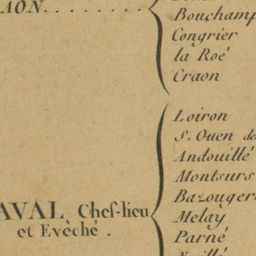 AON........
Bouchamp
Congrier
la Roé
Craon
Loiron
S. Ouen de
Andouillé
Montsurs
Bazouger
AVAL Chef-lieu
et Evêché.
Melay
Parné